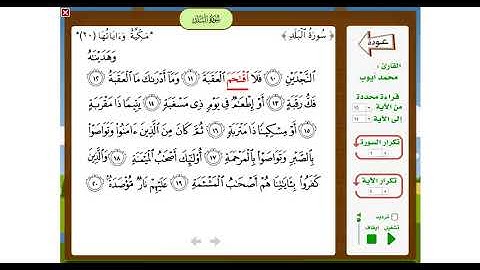 سورة البلد
﴿ سُورَةُ الْبَلَدِ ﴾ *مَكِّيَّةٌ وَءَايَاتُهَا (٢٠)*
وَهَدَيْنَاهُ
النَّجْدَيْنِ ١٠ فَلَا اقْتَحَمَ الْعَقَبَةَ ١١ وَمَا أَدْرَاكَ مَا الْعَقَبَةُ ١٢
فَكُّ رَقَبَةٍ ١٣ أَوْ إِطْعَامٌ فِي يَوْمٍ ذِي مَسْغَبَةٍ ١٤ يَتِيمًا ذَا مَقْرَبَةٍ
١٥ أَوْ مِسْكِينًا ذَا مَتْرَبَةٍ ١٦ ثُمَّ كَانَ مِنَ الَّذِينَ ءَامَنُوا وَتَوَاصَوْا
بِالصَّبْرِ وَتَوَاصَوْا بِالْمَرْحَمَةِ ١٧ أُولَئِكَ أَصْحَابُ الْمَيْمَنَةِ ١٨ وَالَّذِينَ
كَفَرُوا بِئَايَاتِنَا هُمْ أَصْحَابُ الْمَشْئَمَةِ ١٩ عَلَيْهِمْ نَارٌ مُؤْصَدَةٌ ٢٠
عودة
القارئ :
محمد أيوب
قراءة محددة
من الآية
إلى الآية
تكرار السورة
تكرار الآية
ترديد
تشغيل إيقاف